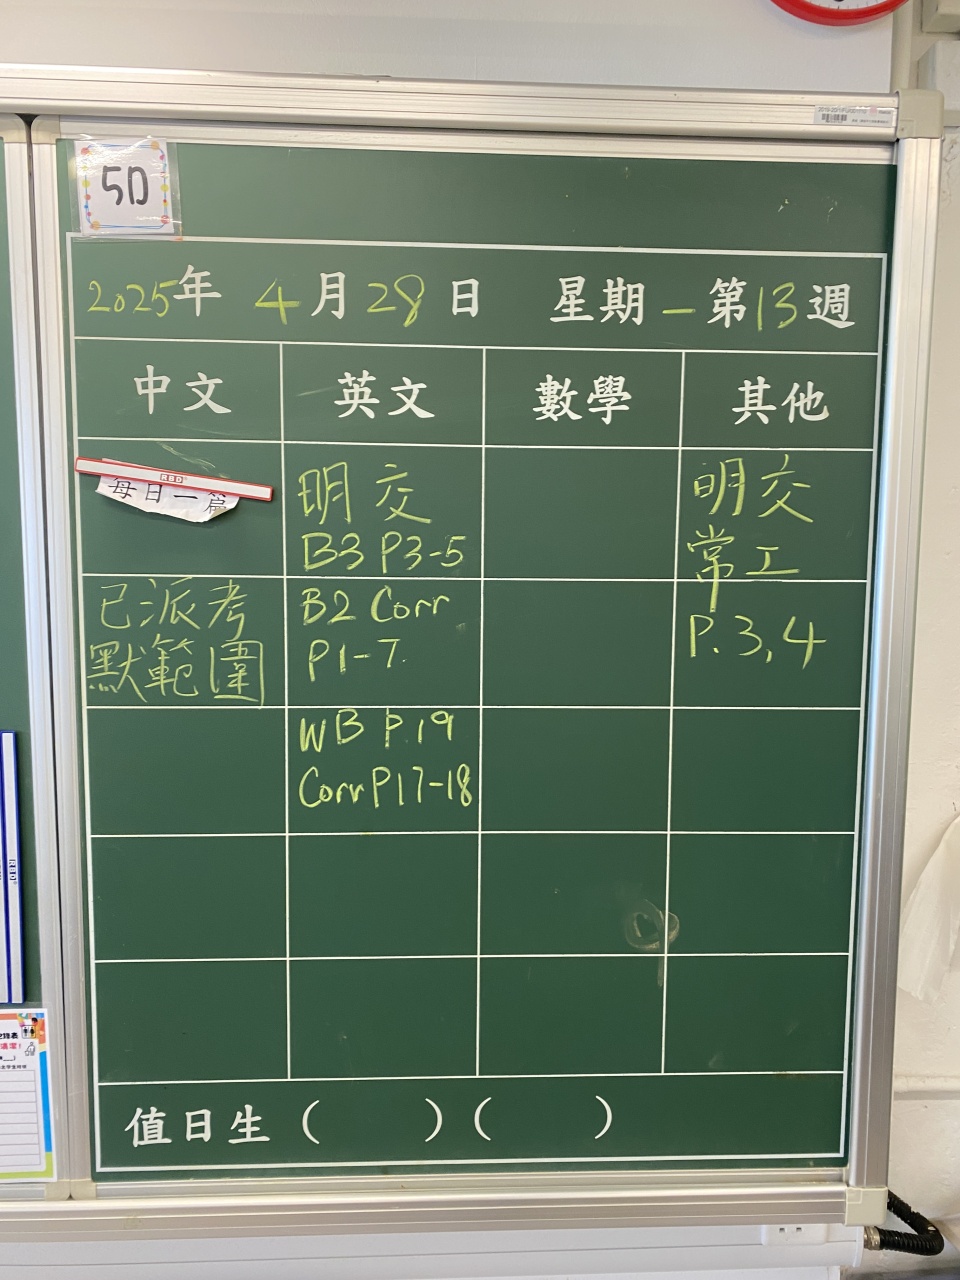 5D
2025年 4月28日 星期一第13週
中文 英文 數學 其他
RBD
每日一篇
明交
B3 P3-5
明交
常工
P.3,4
已派考
默範圍
B2 Corr
P1-7
WB P.19
Corr P17-18
值日生 ( ) ( )
RBD